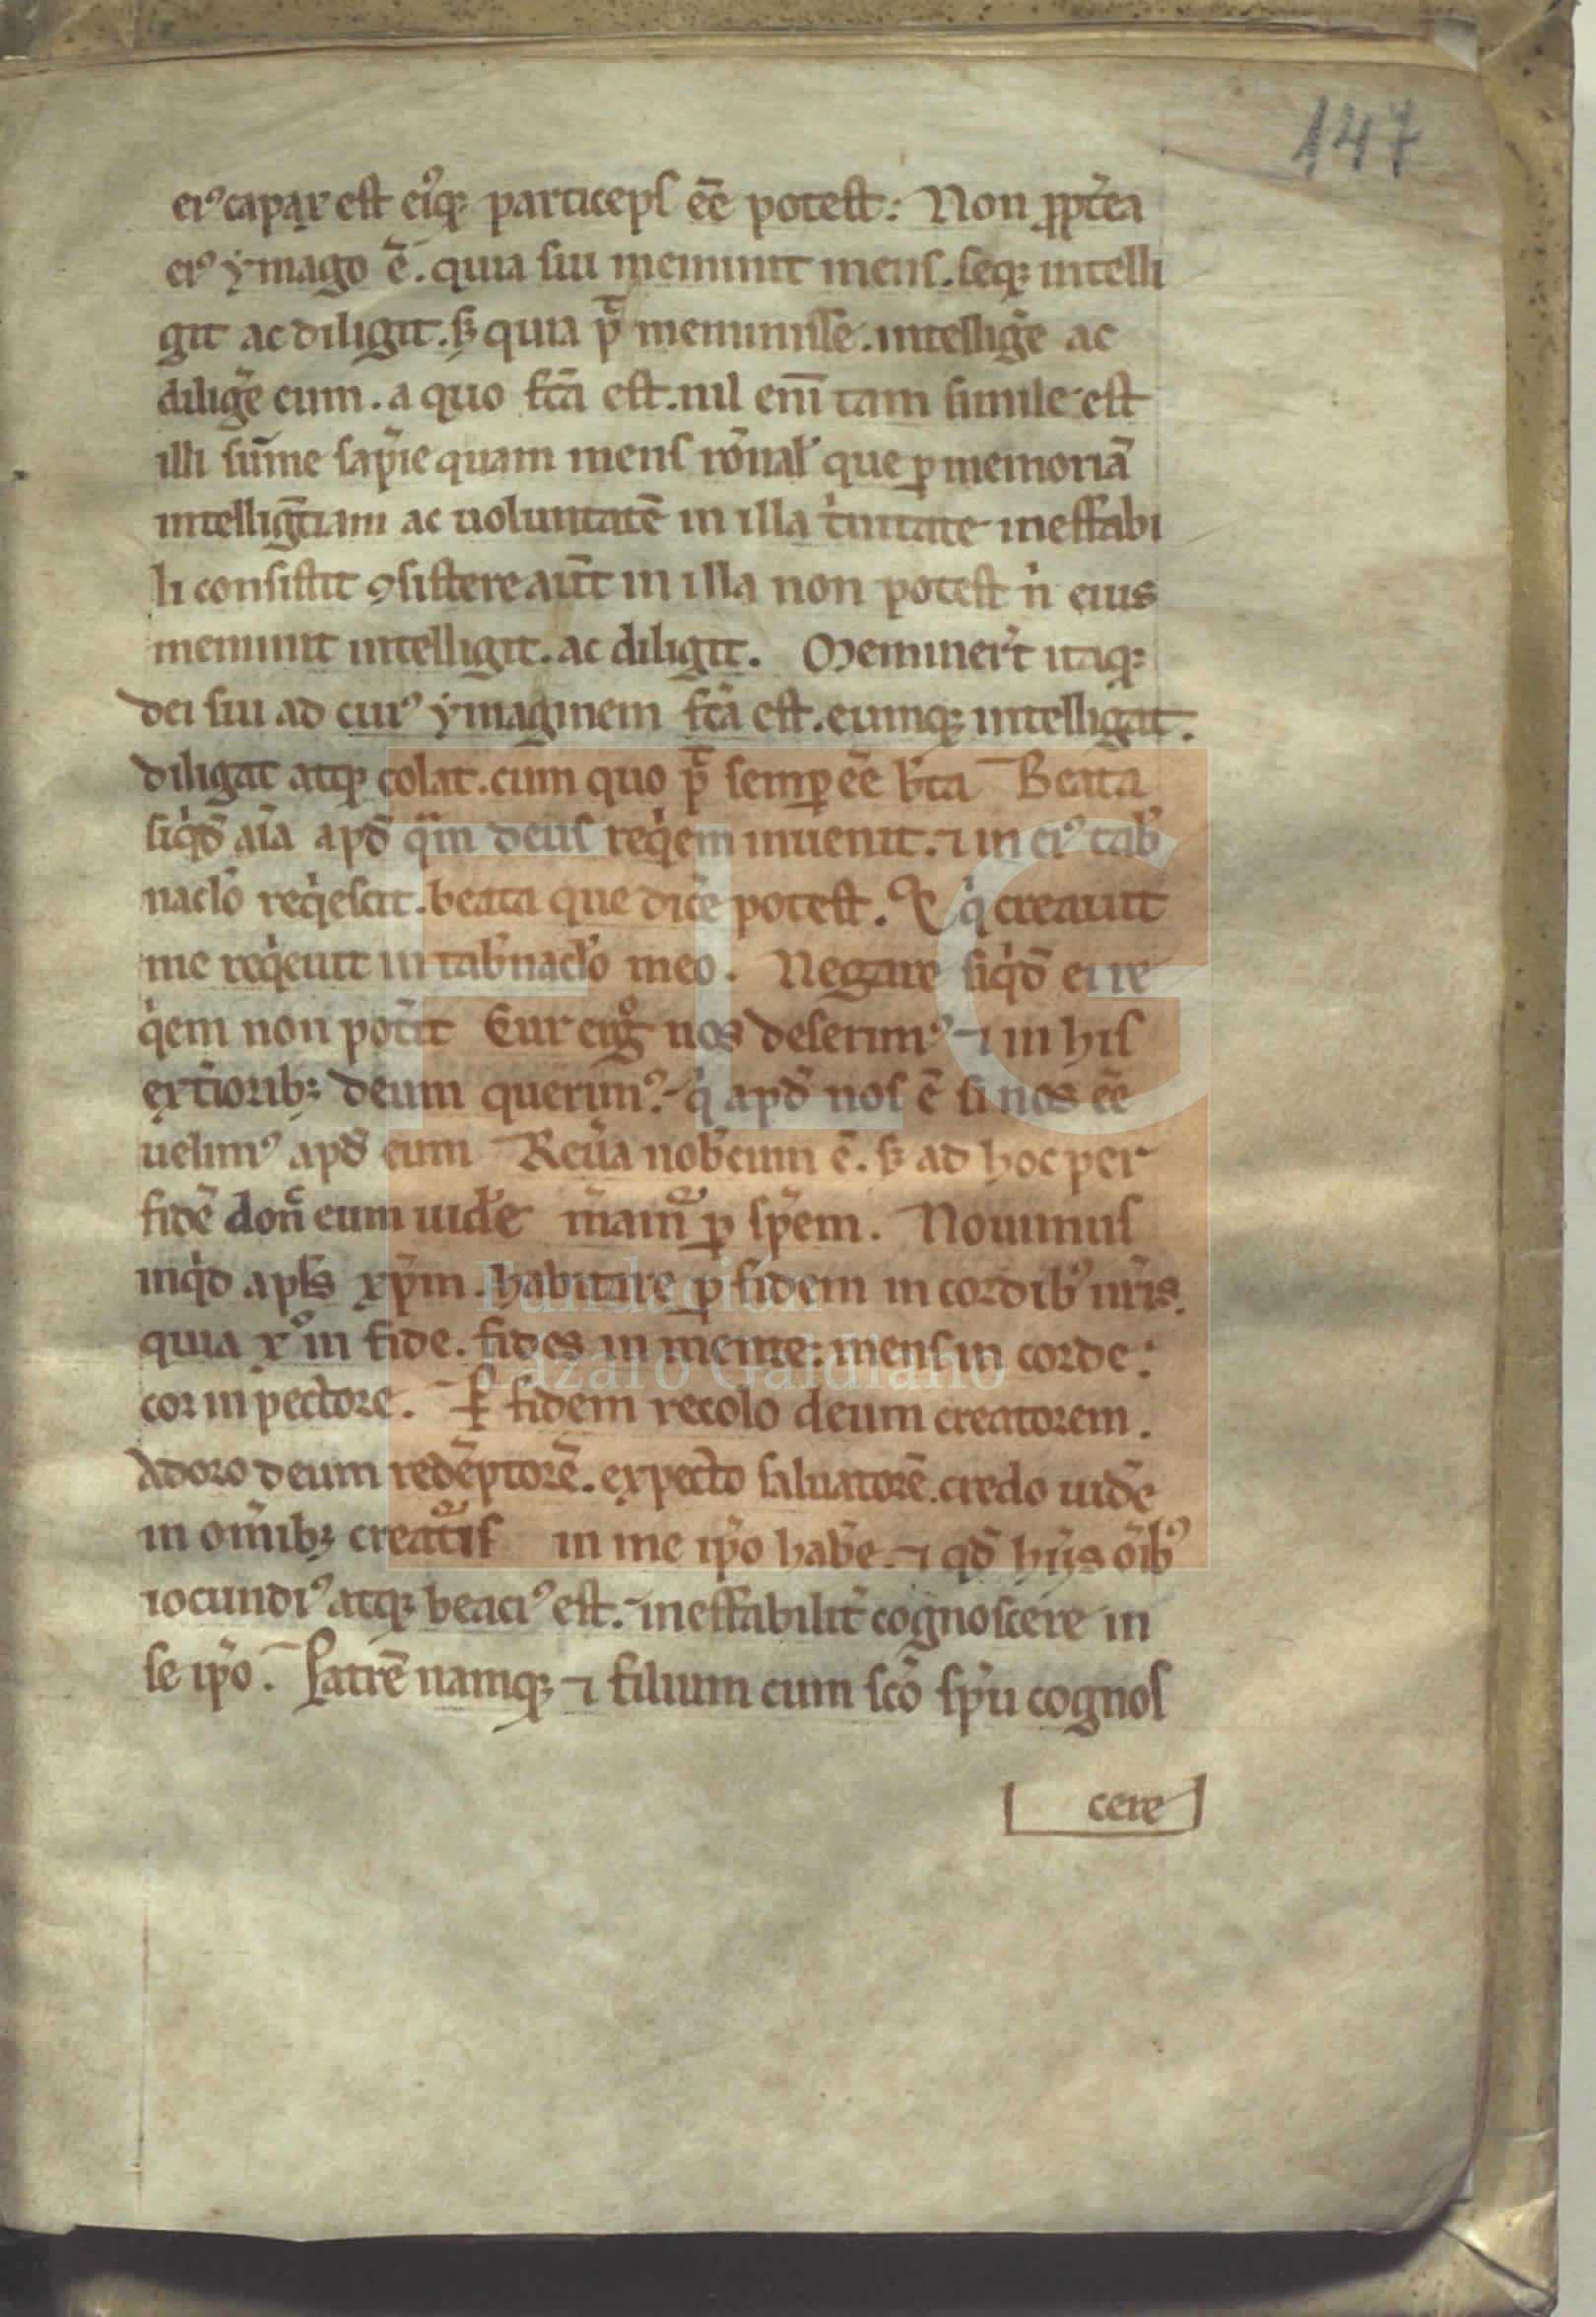 147
eiꝰ capax est eiꝰqꝫ particeps ee̅ potest: Non ꝓpt̅ea
eiꝰ ymago e̅. quia sui meminit mens. seqꝫ intelli
git ac diligit. sꝫ quia p̅t meminisse. intellig̅e ac
dilig̅e eum. a quo fc̅a est. nil eni̅ tam simile est
illi su̅me sapi̅e quam mens ro̅nal̛ que ꝑ memoria̅
intellige̅tiam ac uoluntate̅ in illa t̛nitate ineffabi
li consistit ꝯsistere aut̅ in illa non potest n̛ eius
meminit intelligit. ac diligit. Meminer̛t itaqꝫ
dei sui ad cuiꝰ ymaginem fc̅a est. eumqꝫ intelligat.
diligat atqꝫ colat. cum quo p̅t semꝑ ee̅ b̅ta Beata
siq̛d̅ ai̅a apd̅ qᵃm deus req̛em inuenit. ⁊ in eiꝰ tab̛
nacl̅o req̛escit. beata que dic̅e potest. Et q̛ creauit
me req̛euit in tab̛nacl̅o meo. Negare siq̛d̅ ei re
q̛em non pot̅it Cur erg̊ nos deserimꝰ ⁊ in his
ext̅ioribꝫ deum querimꝰ. q̛ apd̅ nos e̅ si nos ee̅
uelimꝰ apd̅ eum Reu̅a nob̅cum e̅. sꝫ ad hoc per
fide̅ don̅c eum uid̅e m̅am̛ ꝑ sp̅em. Nouimus
inq̛d apl̅s xp̅m. habitare ꝑ fidem in cordibꝰ nr̅is.
quia xꝰ in fide. fides in mente: mens in corde:
cor in pectore. Ꝑ fidem recolo deum creatorem.
Adoro deum rede̅ptore̅. expecto saluatore̅. credo uid̅e
in om̅ibꝫ creat̛is in me ip̅o hab̅e. ⁊ qd̅ hijs oi̅bꝰ
iocundiꝰ atqꝫ beaciꝰ est. ineffabilit̛ cognoscere in
se ip̅o. Patre̅ namqꝫ ⁊ filium cum sc̅o sp̅u cognos
cere
FLG
Fundación
Lázaro Galdiano